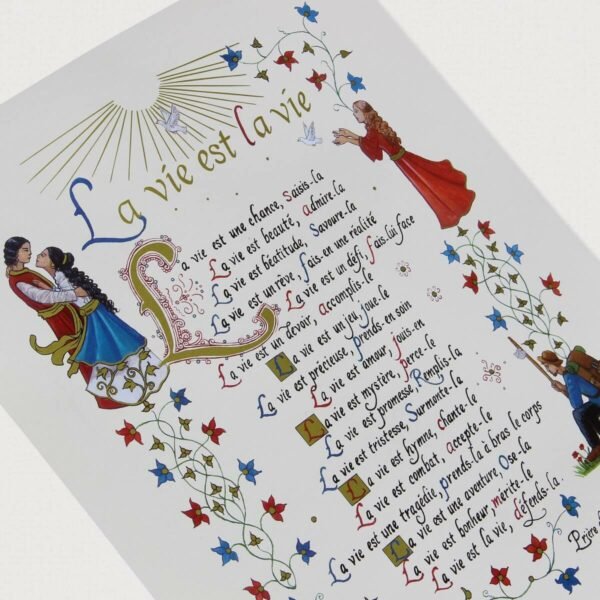 La vie est la vie
La vie est une chance, Saisis-la
La vie est beauté, admire-la
La vie est béatitude, Savoure-la
La vie est un rêve, fais-en une réalité
La vie est un défi, fais-lui face
La vie est un devoir, accomplis-le
La vie est un jeu, joue-le
La vie est précieuse, prends-en soin
La vie est amour, jouis-en
La vie est mystère, perce-le
La vie est promesse, Remplis-la
La vie est tristesse, Surmonte-la
La vie est hymne, chante-le
La vie est combat, accepte-le
La vie est une tragédie, prends-la à bras le corps
La vie est une aventure, Ose-la
La vie est bonheur, mérite-le
La vie est la vie, défends-la.
Prière